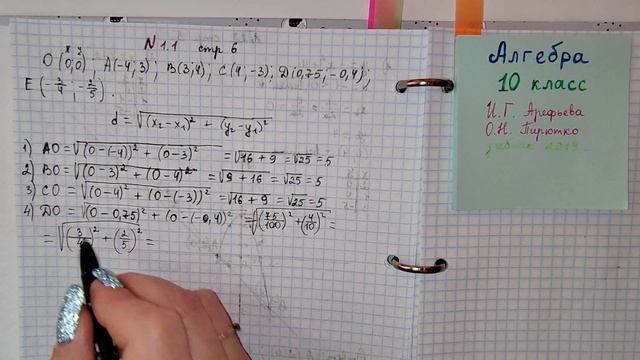 N 1.1 стр 6
x y
O (0;0); A(-4; 3); B(3; 4), C(4; -3), D(0,75; -0,4);
E (-3/4; -2/5).
d = √((x₂ - x₁)² + (y₂ - y₁)²)
1) AO = √((0-(-4))² + (0-3)²) = √(16 + 9) = √25 = 5
2) BO = √((0-3)² + (0-4)²) = √(9 + 16) = √25 = 5
3) CO = √((0-4)² + (0-(-3))²) = √(16 + 9) = √25 = 5
4) DO = √((0-0,75)² + (0-(-0,4)²) = √((75/100)² + (4/10)²) =
= √((3/4)² + (2/5)²) =
Алгебра
10 класс
И.Г. Арефьева
О.Н. Пирютко
учебник 2019